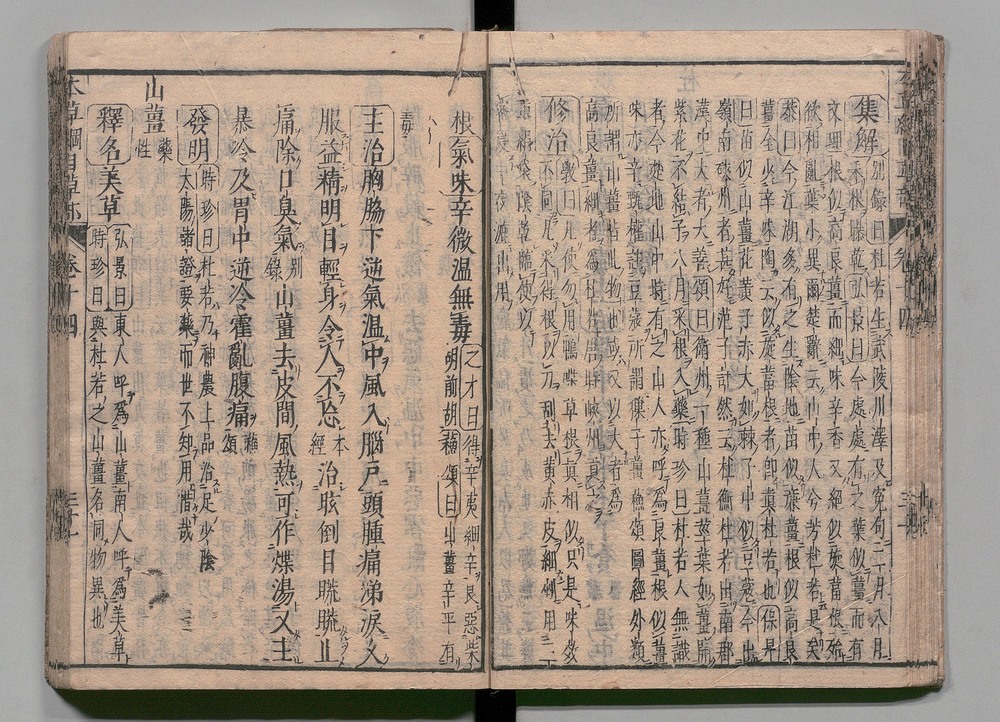 集解 別錄曰杜若生武陵川澤及冤句二月八月
采根曝乾弘景曰今處處有之葉似薑而有
文理根似高良薑而細味辛香又絕似旋葍根殆
欲相亂葉小異爾楚辭云山中人兮芳杜若是矣
恭曰今江湖多有之生陰地苗似廉薑根似高良
薑全少辛味陶云似旋葍根者即真杜若也保昇
曰苗似山薑花黃子赤大如棘子中似豆蔻今出
嶺南硤州者甚好范子計然云杜衡杜若出南郡
漢中大者大善頌曰衛州一種山薑莖葉如薑開
紫花不結子八月采根入藥時珍曰杜若人無識
者今楚地山中時有之山人亦呼為良薑根似薑
味亦辛甄權註豆蔻所謂獲子薑蘇頌圖經外類
所謂山薑皆此物也或又以大者為
高良薑細者為杜若唐時峽州貢之
修治 斅曰凡使勿用鴨喋草根真相似只是味效
不同凡采得根以刀刮去黃赤皮細剉用三
根氣味辛微溫無毒 之才曰得辛夷細辛良惡柴
胡前胡蘇頌曰山薑辛平有
毒
主治胸脇下逆氣溫中風入腦戶頭腫痛涕淚久
服益精明目輕身令人不忘 本經 治眩倒目䀮䀮止
痛除口臭氣 別錄 山薑去皮間風熱可作煠湯又主
暴冷及胃中逆冷霍亂腹痛 蘇頌
發明 時珍曰杜若乃神農上品治足少陰
太陽諸證要藥而世不知用惜哉
山薑 藥性
釋名美草 弘景曰東人呼為山薑南人呼為美草
時珍曰與杜若之山薑名同物異也
本草綱目草部 卷十四